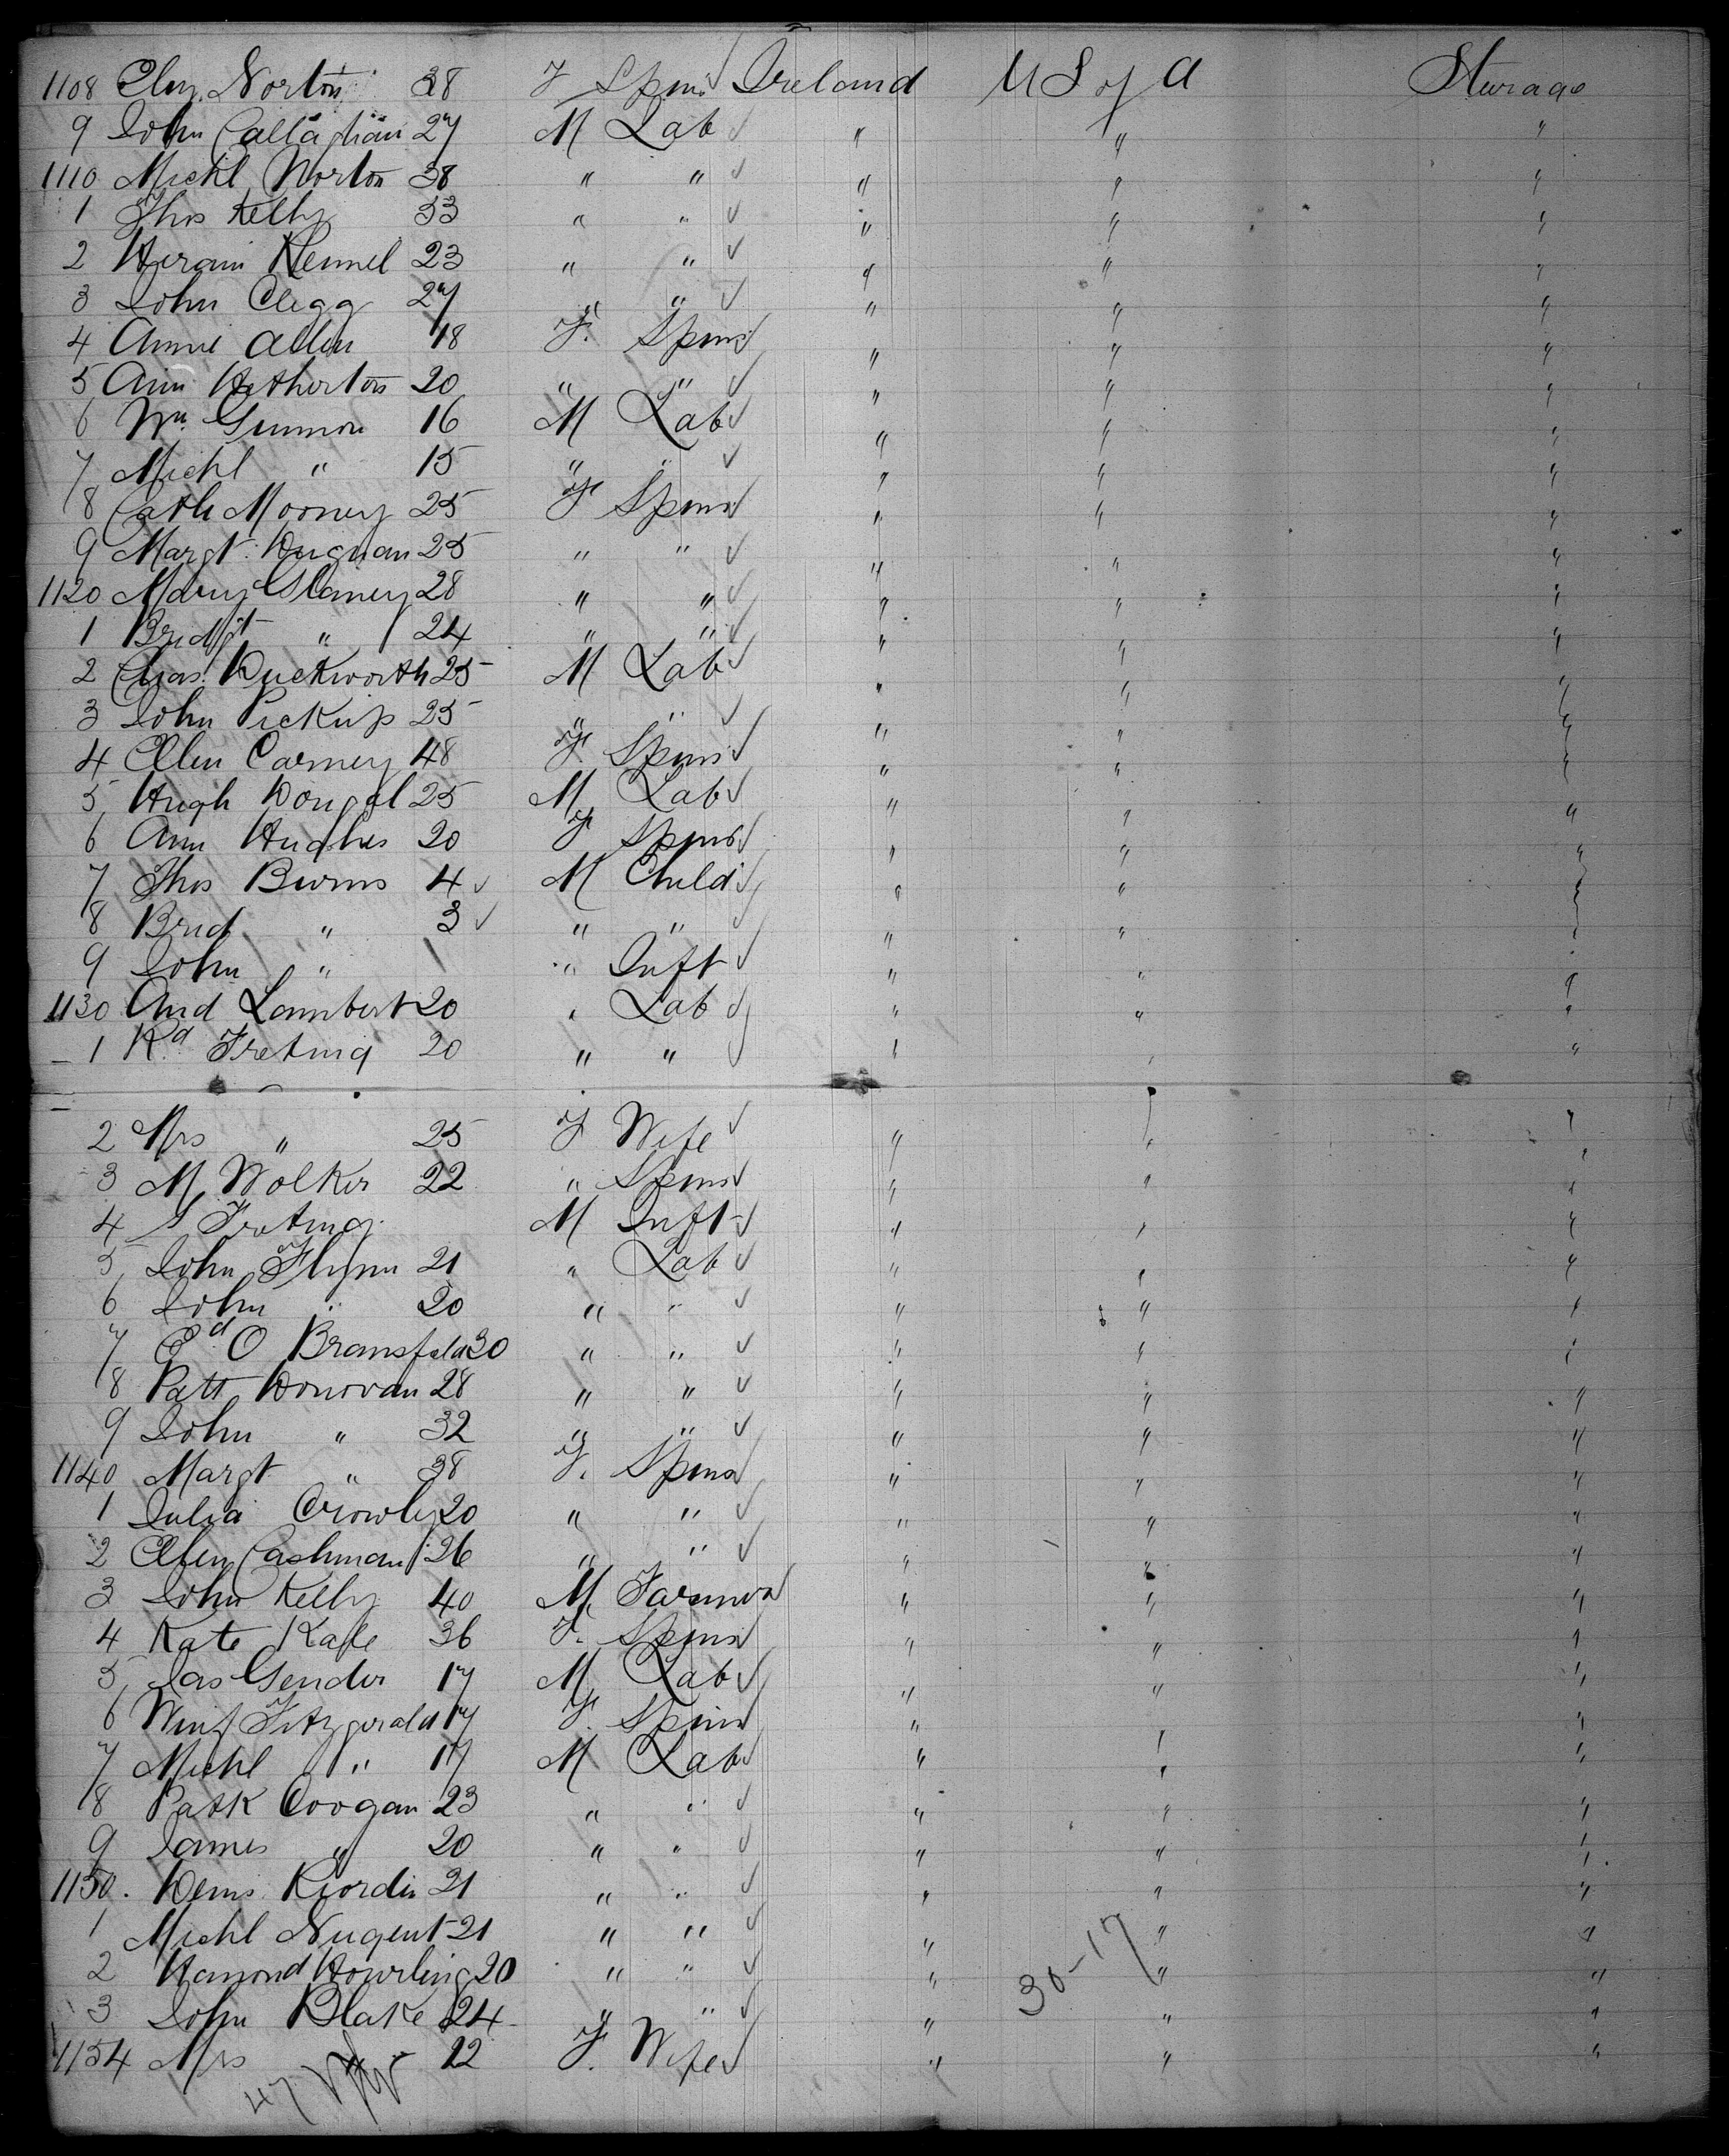 1108 Eliz. Norton 38 F Spins Ireland U S of A Sterage
9 John Callaghan 27 M Lab " " "
1110 Michl Norton 38 " " " " "
1 Thos Kelly 33 " " " " "
2 Hiram Kennel 23 " " " " "
3 John Clegg 27 " " " " "
4 Annie Allen 18 F. Spins " " "
5 Ann Hetherton 20 " " " " "
6 Wm Gunnon 16 M Lab " " "
7 Michl " 15 " " " " "
8 Cath Mooney 25 F Spins " " "
9 Margt Dugnan 25 " " " " "
1120 Mary Slaney 28 " " " " "
1 Bridgt " 24 " " " " "
2 Chas. Duckworth 25 M Lab " " "
3 John Pickup 25 " " " " "
4 Ellen Carney 48 F. Spins " " "
5 Hugh Dougal 25 M Lab " " "
6 Ann Hughes 20 F Spins " " "
7 Thos Burns 4 M Child " " "
8 Brid " 3 " " " " "
9 John " " Inft " " "
1130 And Lambert 20 " Lab " " "
1 Rd Freting 20 " " " " "
2 Mrs " 25 F Wife " " "
3 M Wolker 22 " Spins " " "
4 S Freting M Inft " " "
5 John Flynn 21 " Lab " " "
6 John " 20 " " " " "
7 Ed O Bransfeld 30 " " " " "
8 Patt Donovan 28 " " " " "
9 John " 32 " " " " "
1140 Margt " 38 F. Spins " " "
1 Julia Crowly 20 " " " " "
2 Ellen Cashman 26 " " " " "
3 John Kelly 40 M Farmer " " "
4 Kate Kale 36 F. Spins " " "
5 Jas Gender 17 M Lab " " "
6 Winf Fitzgerald 17 F. Spins " " "
7 Michl " 17 M Lab " " "
8 Patk Coogan 23 " " " " "
9 James " 20 " " " " "
1150. Denis Riordin 21 " " " " "
1 Michl Nugent 21 " " " " "
2 Hamond Howrling 20 " " " " "
30-17
3 John Blake 24 " " " " "
1154 Mrs " 22 F. Wife " " "
47